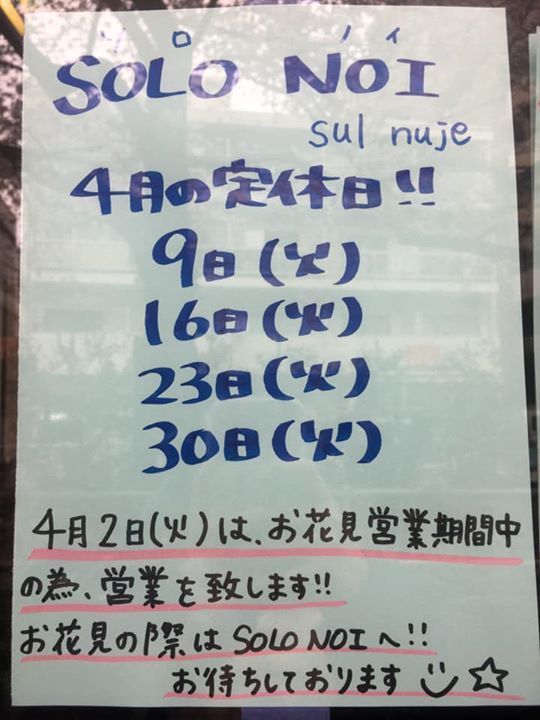 ソロ ノイ
SOLO NOI
sul nuje
4月の定休日!!
9日(火)
16日(火)
23日(火)
30日(火)
4月2日(火)は、お花見営業期間中
の為、営業を致します!!
お花見の際はSOLO NOIへ!!
お待ちしております ☆